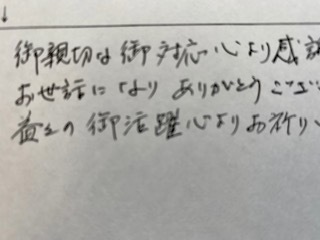 御親切な御対応心より感謝
お世話になり ありがとうござい
益々の御活躍心よりお祈りい